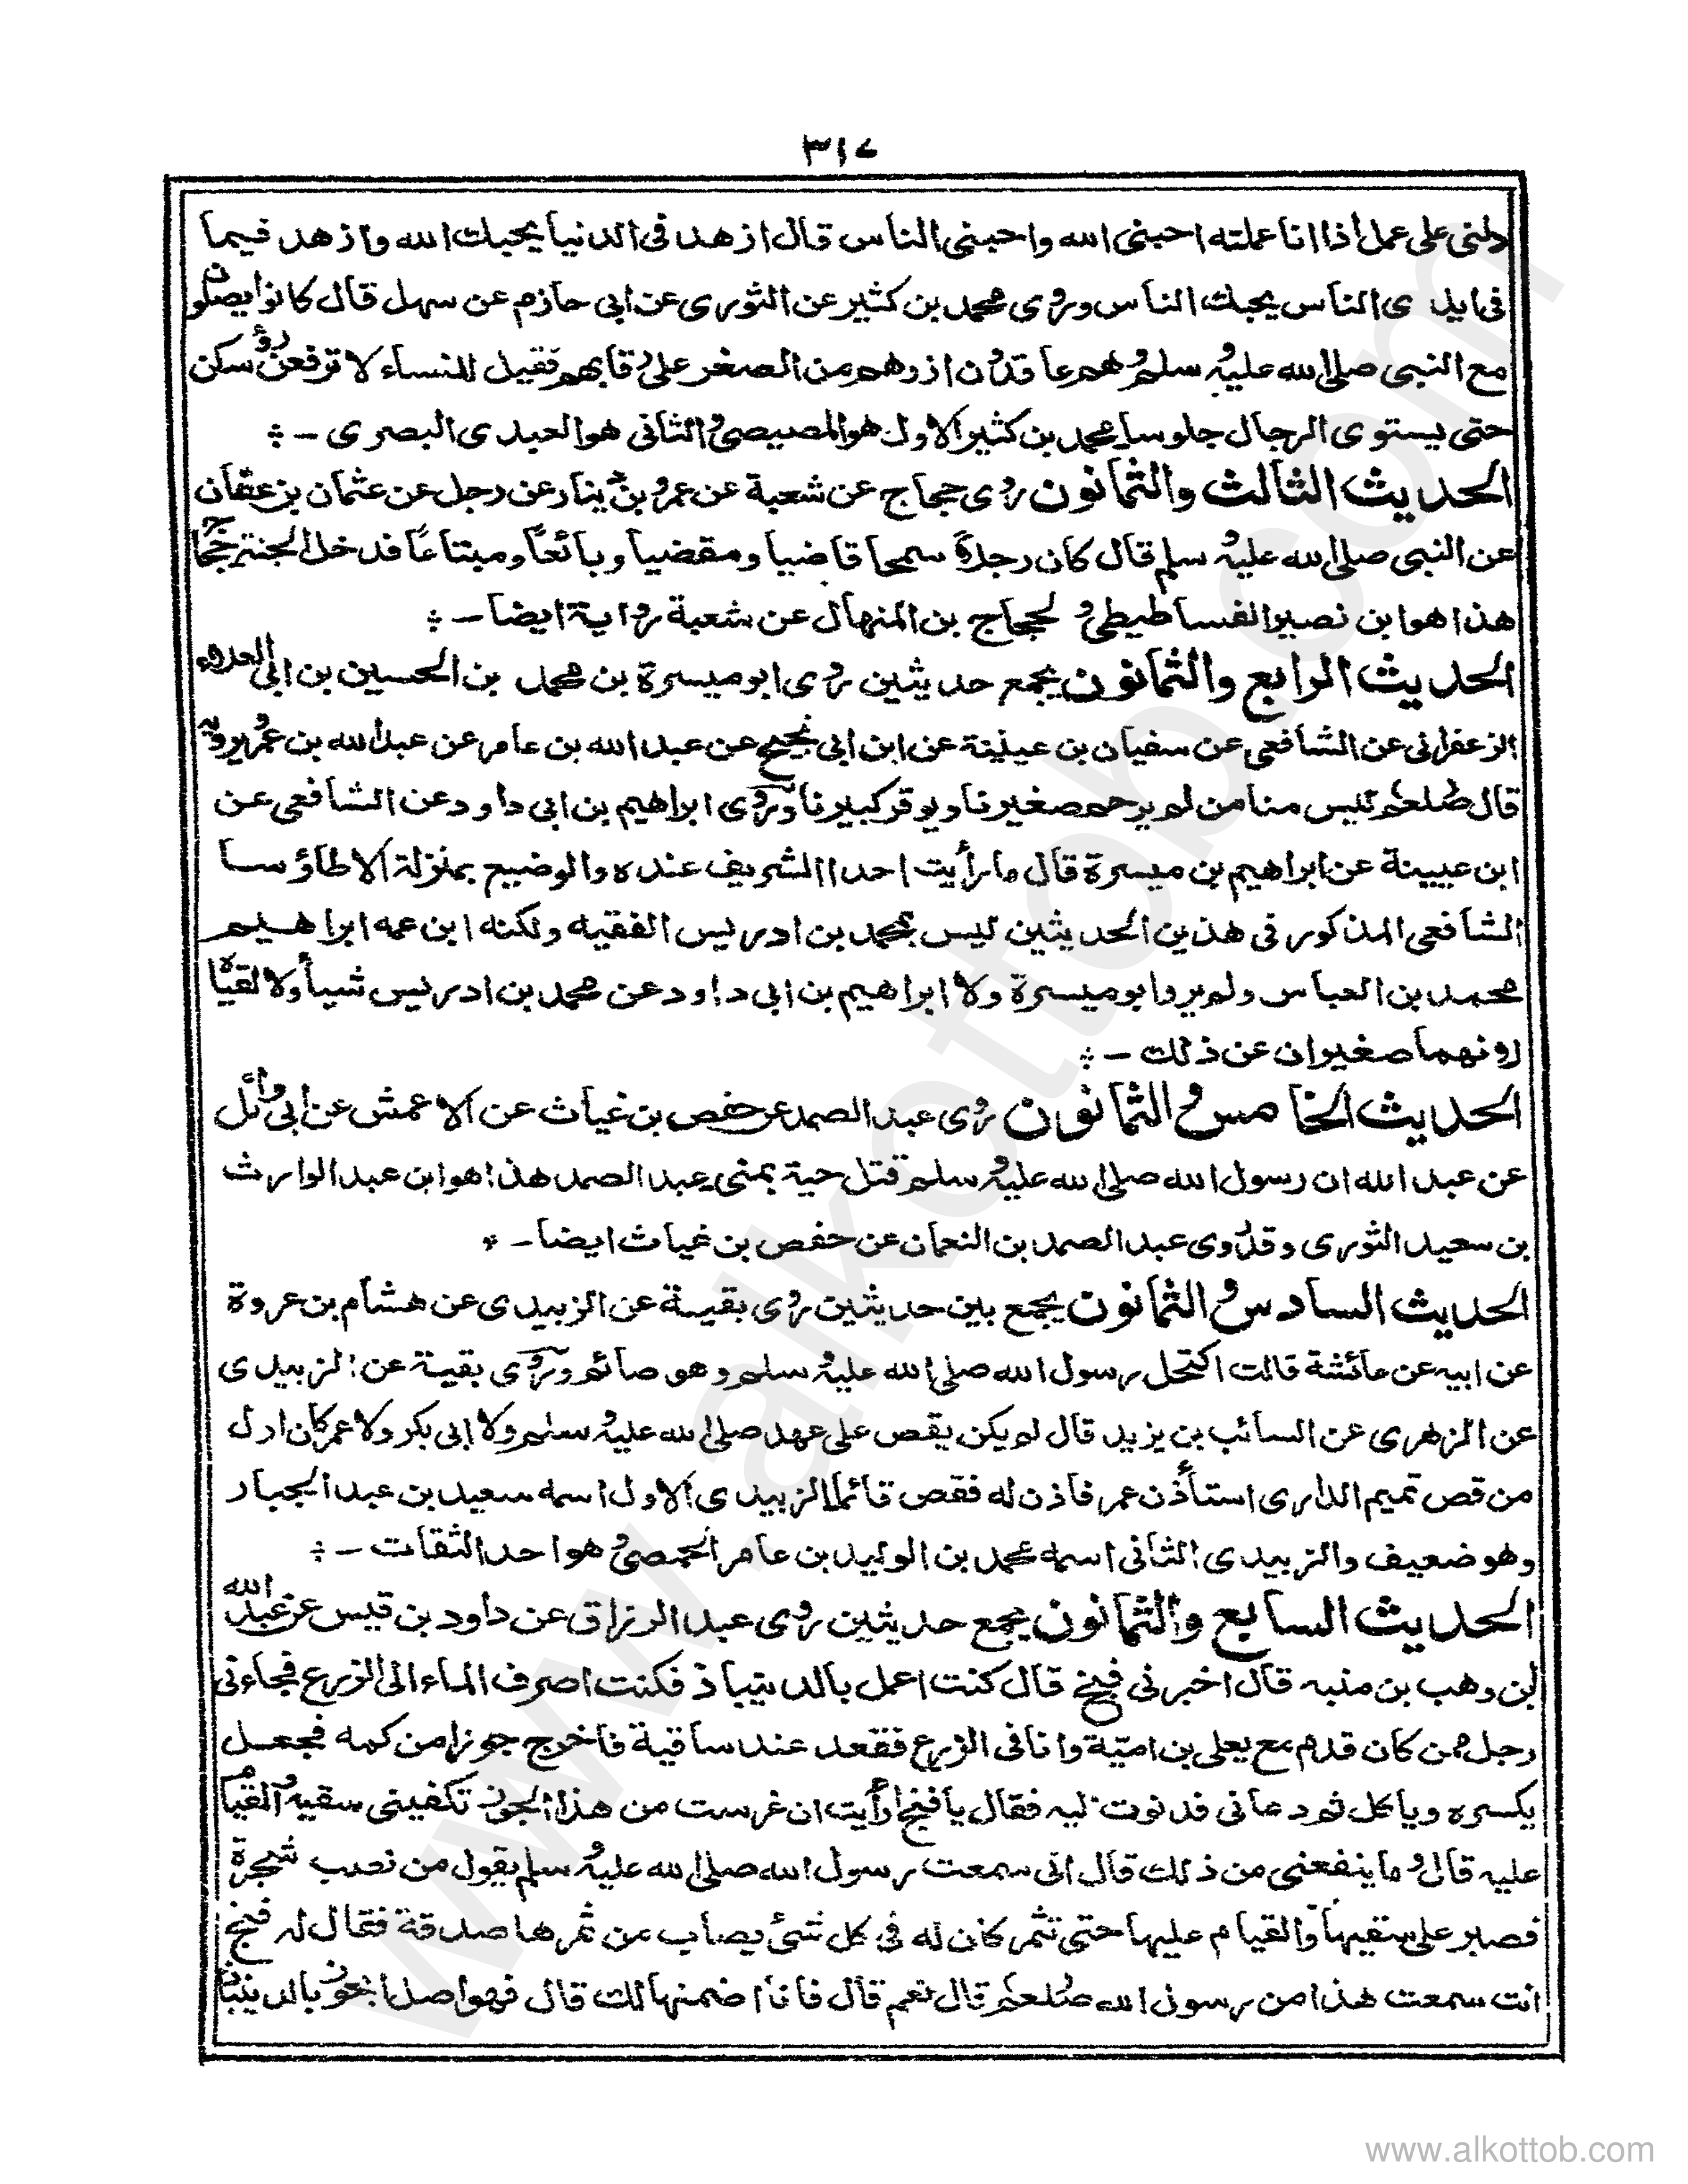 ٣١٧
دلنی علی عمل اذا انا عملته احبنی الله واحبنی الناس قال ازهد فی الدنیا یحبك الله وازهد فیما
فی ایدی الناس یحبك الناس وروی محمد بن کثیر عن الثوری عن ابی حازم عن سهل قال کانوا یصلون
مع النبی صلی الله علیه وسلم وهم عاقدون ازرهم من الصغر علی رقابهم فقیل للنساء لا ترفعن رؤسکن
حتی یستوی الرجال جلوسا محمد بن کثیر الاول هو المصیصی والثانی هو العبدی البصری ـ
الحدیث الثالث والثمانون روی حجاج عن شعبة عن عمرو بن دینار عن رجل عن عثمان بن عفان
عن النبی صلی الله علیه وسلم قال کان رجلا سمحا قاضیا ومقضیا وبائعا ومبتاعا فدخل الجنة حجاج
هذا هو ابن نصیر الفساطیطی ولحجاج بن المنهال عن شعبة روایة ایضا ـ
الحدیث الرابع والثمانون یجمع حدیثین روی ابو میسرة بن محمد بن الحسین بن ابی العلاء
الزعفرانی عن الشافعی عن سفیان بن عیینة عن ابن ابی نجیح عن عبد الله بن عامر عن عبد الله بن عمرو یرویه
قال صلعم لیس منا من لم یرحم صغیرنا ویوقر کبیرنا وروی ابراهیم بن ابی داود عن الشافعی عن
ابن عیینة عن ابراهیم بن میسرة قال ما رأیت احدا الشریف عنده والوضیع بمنزلة الا طاؤسا
الشافعی المذکور فی هذین الحدیثین لیس بمحمد بن ادریس الفقیه ولکنه ابن عمه ابراهیم
محمد بن العباس ولم یرو ابو میسرة ولا ابراهیم بن ابی داود عن محمد بن ادریس شیأ ولا لقیاه
لانهما صغیران عن ذلك ـ
الحدیث الخامس والثمانون روی عبد الصمد عن حفص بن غیاث عن الاعمش عن ابی وائل
عن عبد الله ان رسول الله صلی الله علیه وسلم قتل حیة بمنی عبد الصمد هذا هو ابن عبد الوارث
بن سعید الثوری وقد روی عبد الصمد بن النعمان عن حفص بن غیاث ایضا ـ
الحدیث السادس والثمانون یجمع بین حدیثین روی بقیة عن الزبیدی عن هشام بن عروة
عن ابیه عن عائشة قالت اکتحل رسول الله صلی الله علیه وسلم وهو صائم وروی بقیة عن الزبیدی
عن الزهری عن السائب بن یزید قال لم یکن یقص علی عهد صلی الله علیه وسلم ولا ابی بکر ولا عمر کان اول
من قص تمیم الداری استأذن عمر فاذن له فقص قائما الزبیدی الاول اسمه سعید بن عبد الجبار
وهو ضعیف والزبیدی الثانی اسمه محمد بن الولید بن عامر الحمصی وهو احد الثقات ـ
الحدیث السابع والثمانون یجمع حدیثین روی عبد الرزاق عن داود بن قیس عن عبد الله
بن وهب بن منبه قال اخبرنی فنج قال کنت اعمل بالدینباذ فکنت اصرف الماء الی الزرع فجاءنی
رجل ممن کان قدم مع یعلی بن امیة وانا فی الزرع فقعد عند ساقیة فاخرج جوزا من کمه فجعل
یکسره ویاکل ثم دعانی فدنوت الیه فقال یا فنج ارأیت ان غرست من هذا الجوز تکفینی سقیه والقیام
علیه قال وما ینفعنی من ذلك قال انی سمعت رسول الله صلی الله علیه وسلم یقول من نصب شجرة
فصبر علی سقیها والقیام علیها حتی تثمر کان له فی کل شئ یصاب من ثمرها صدقة فقال له فنج
انت سمعت هذا من رسول الله صلعم قال نعم قال فانا اضمنها لك قال فهو اصل الجوز بالدینباذ
www.alkottob.com
www.alkottob.com